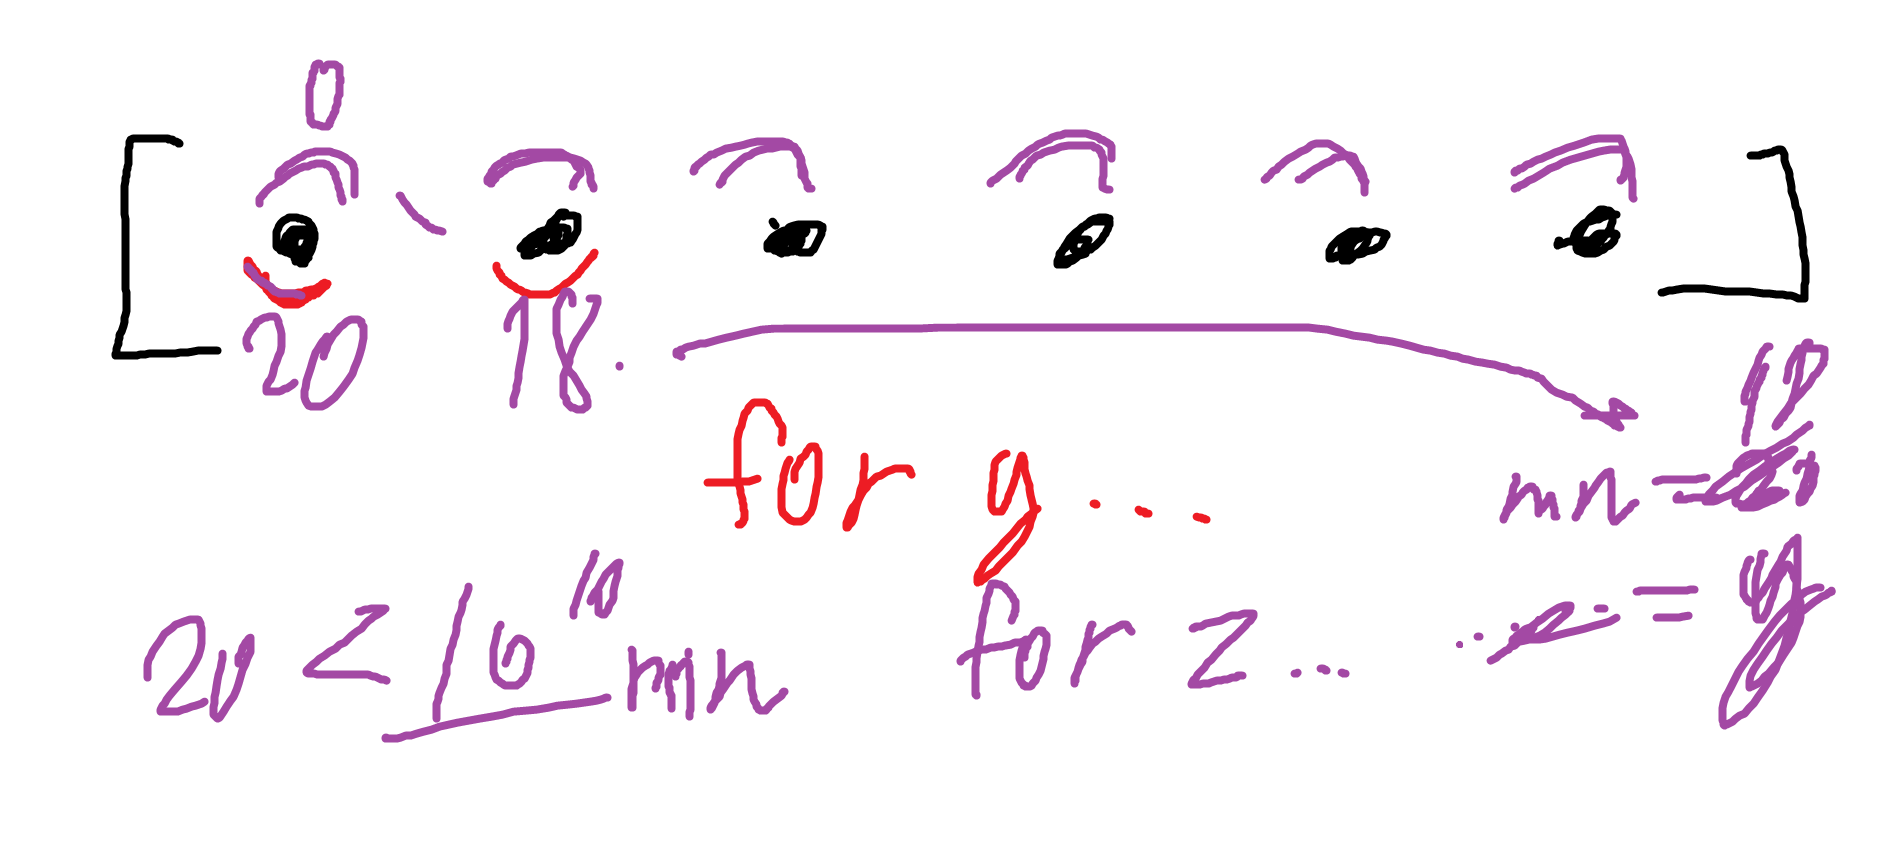 0
[ ]
20 18.
for y ...
mn =
20 < 10^10 mn
for z ...
... = y